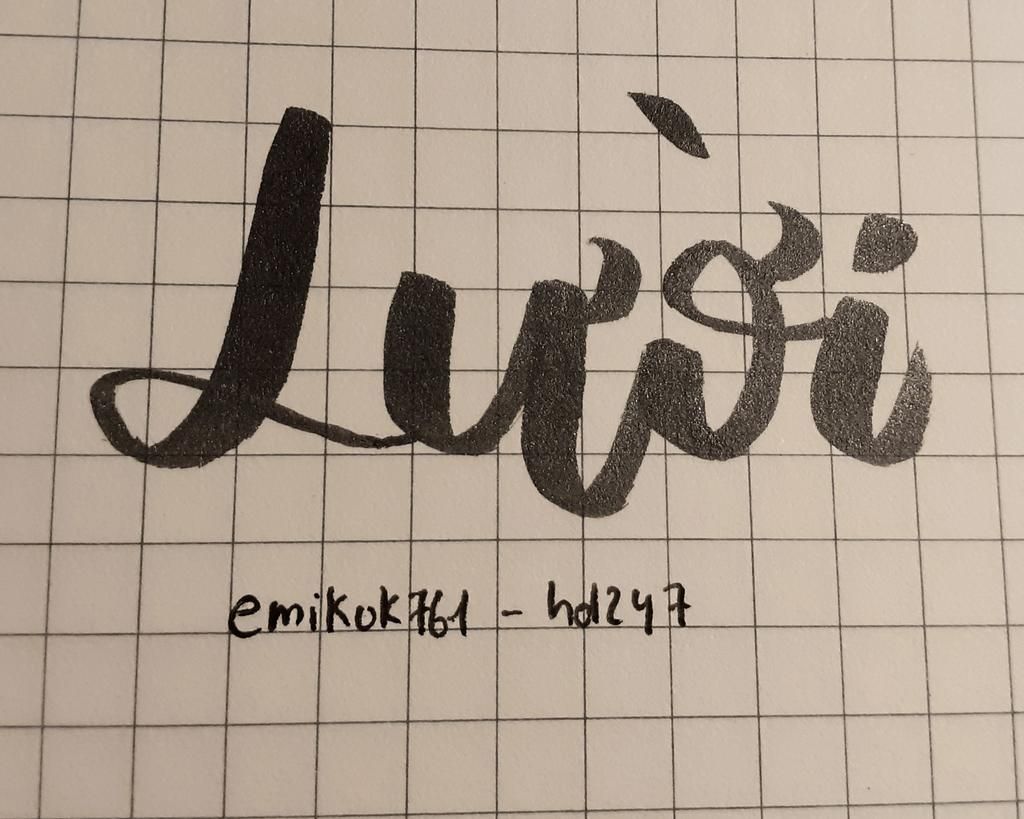 Lười
emikok761 - hd247